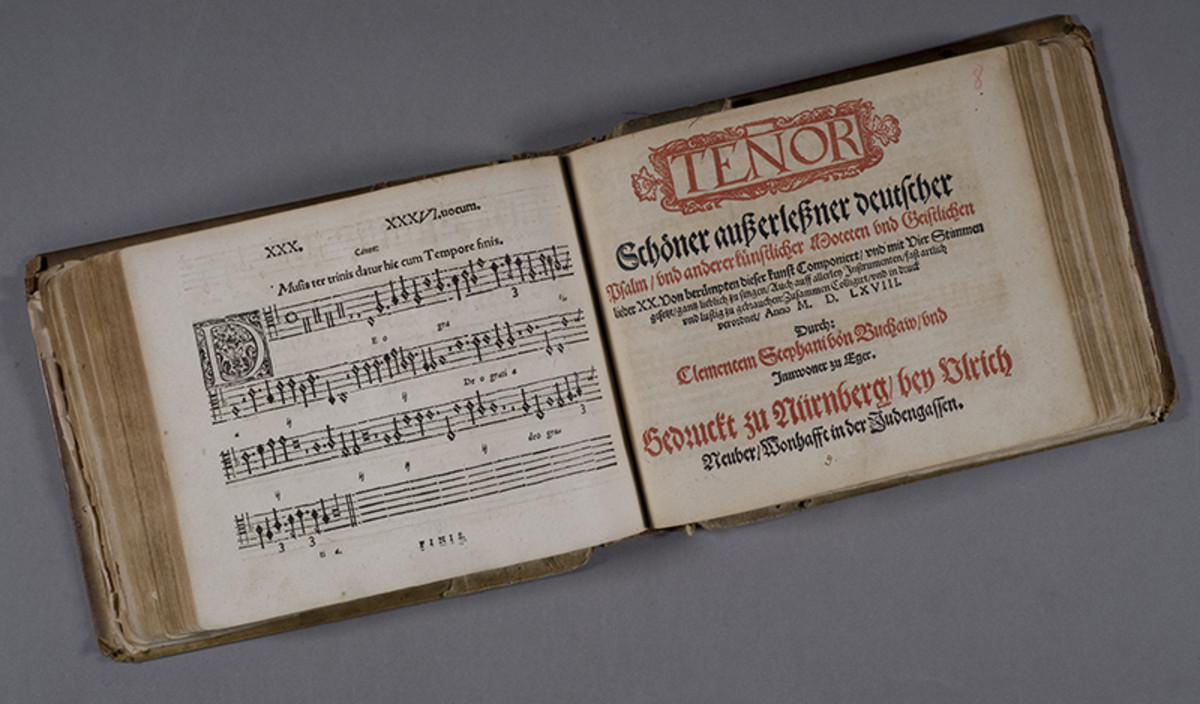 XXX.
XXXVI. uocum.
Canon:
Musis ter trinis datur hic cum Tempore finis.
D
3
E o
gra
a
ij
ij
De o grati a
3
ij
ij
ij
ij
deo gras
3
3
ti a.
FINIS.
8
TENOR
Schöner außerleßner deutscher
Psalm / vnd anderer künstlicher Moteten vnd Geistlichen
lieder XX. Von berümpten dieser kunst Componiert / vnd mit Vier Stimmen
gesetzt / gantz lieblich zu singen / Auch auff allerley Instrumenten / fast artlich
vnd lustig zu gebrauchen: Zusammen Colligirt / vnd in druck
verordnet / Anno M. D. LXVIII.
Durch:
Clementem Stephani von Buchaw / vnd
Innwoner zu Eger.
Gedruckt zu Nürnberg / bey Ulrich
Neuber / Wonhafft in der Judengassen.
9.